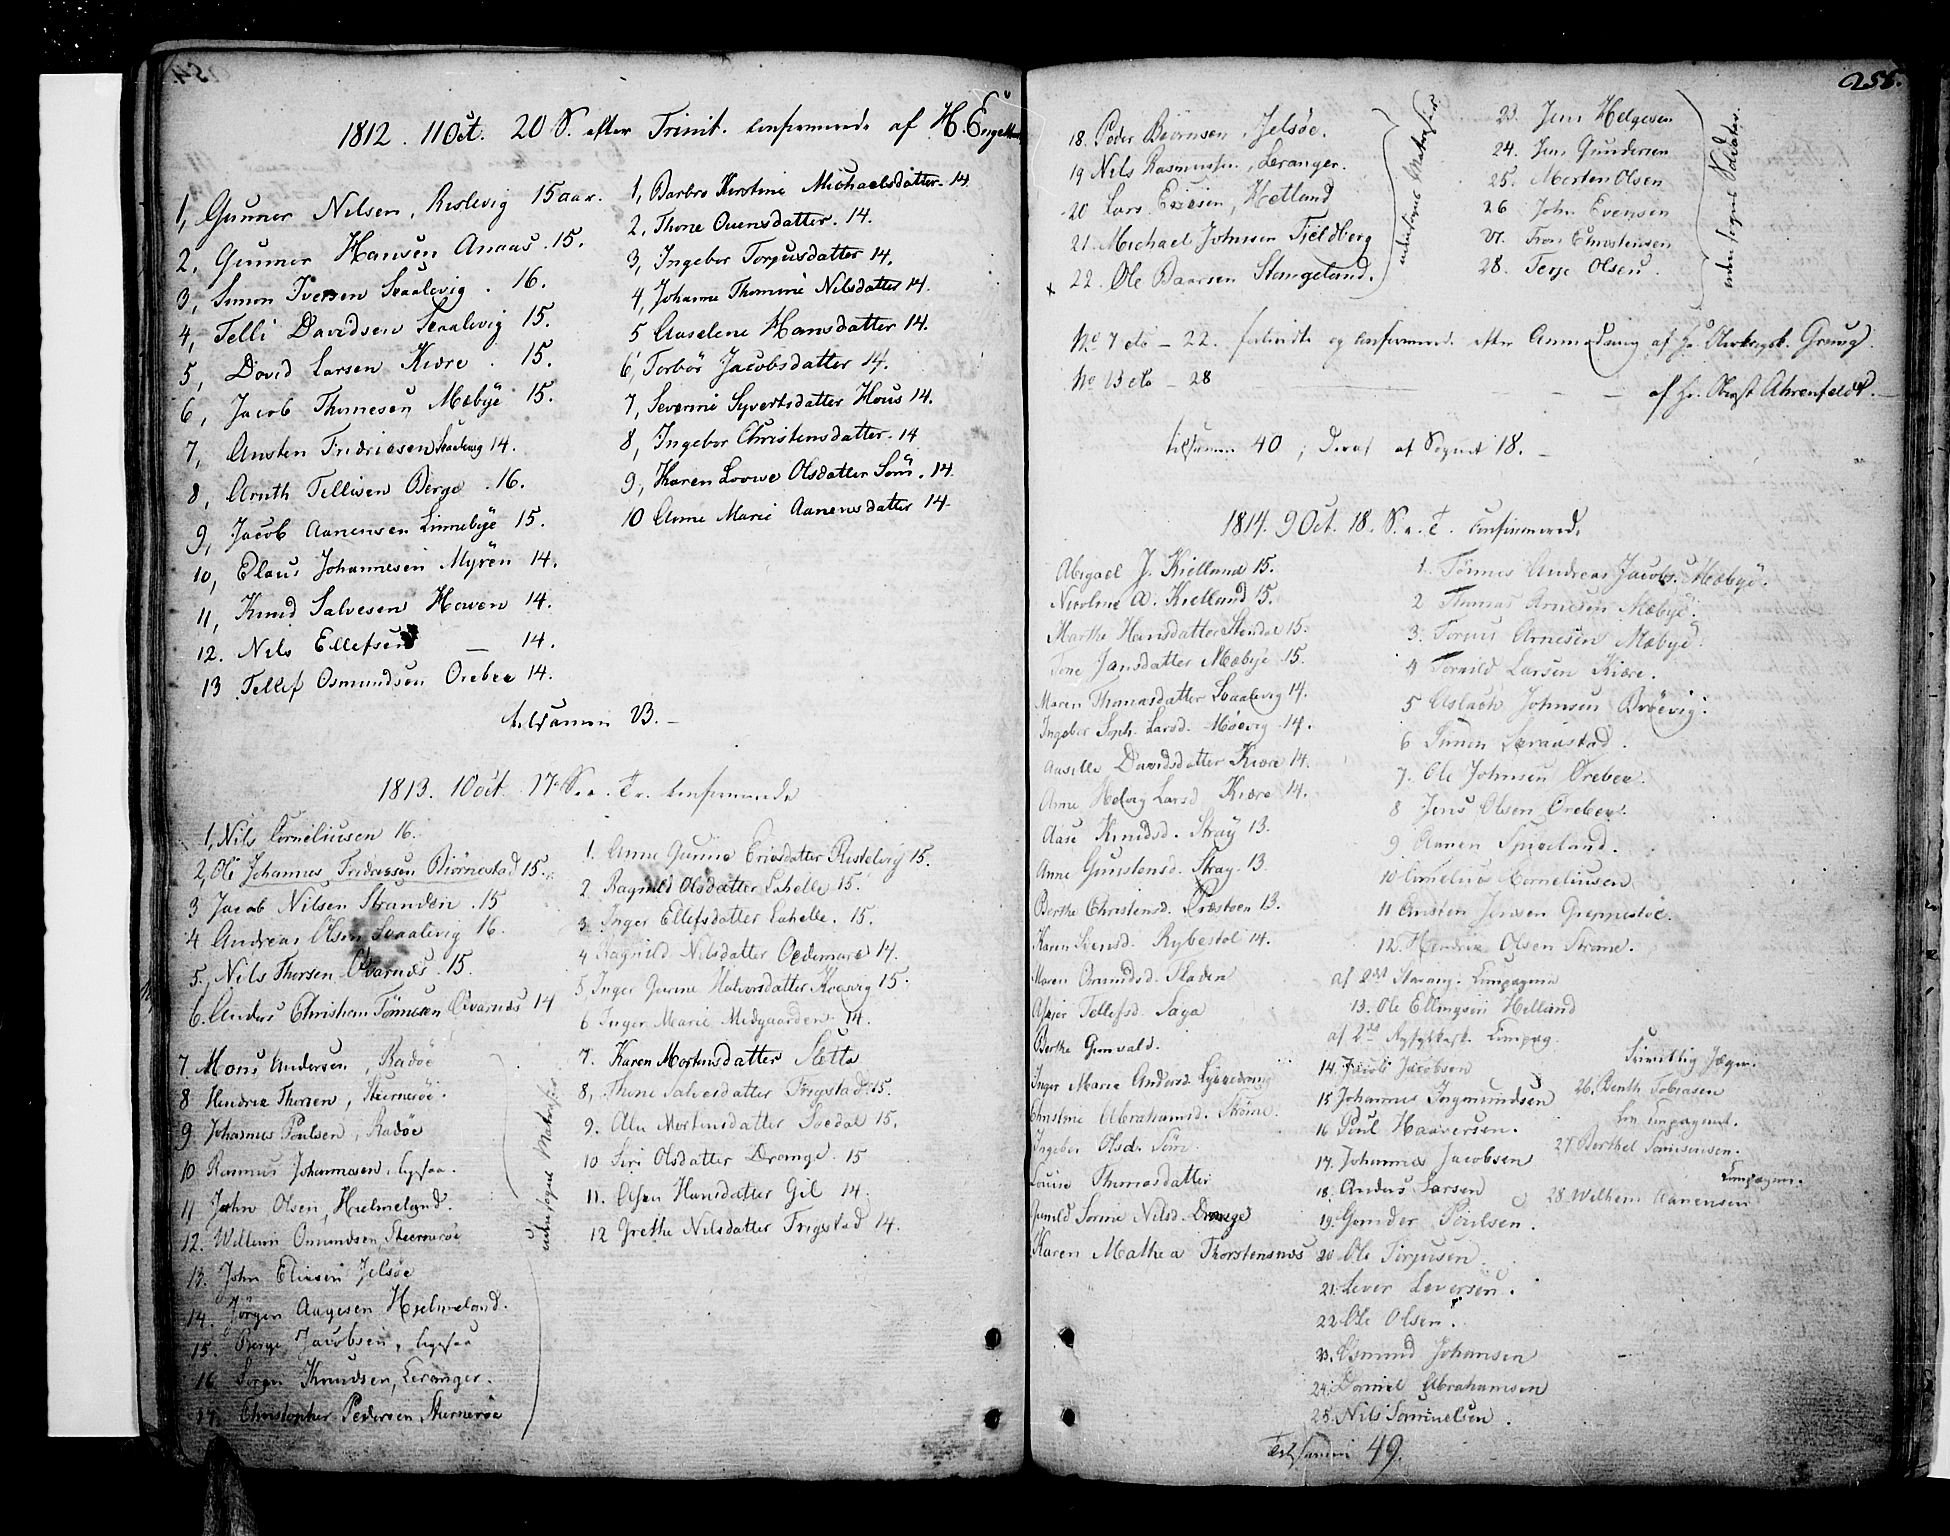 1812. 11 Oct. 20 S. efter Trinit. confirmerede af H. Engel
1, Gunner Nilsen, Rislevig 15 aar.
2, Gunner Hansen Anaas. 15.
3, Simon Iversen Skaalevig. 16.
4, Telli Davidsen Skaalevig 15.
5, David Larsen Kiære. 15.
6, Jacob Thomesen Mæbye 15.
7, Austen Fridricsen Skaalevig 14.
8, Arnth Tellisen Berge. 16.
9, Jacob Aanensen Linnebye 15.
10, Claus Johannesen Myren 14.
11, Knud Salvesen Howen 14.
12. Nils Ellefsen — 14.
13 Tellef Osmundsen Orebec 14.
1, Barbro Kirstine Michaelsdatter. 14
2, Thone Ouensdatter. 14.
3, Ingebor Torjusdatter 14.
4, Johanne Thomine Nilsdatter 14.
5 Aaselene Hansdatter 14.
6, Torbör Jacobsdatter 14.
7, Severine Syvertsdatter Hous 14.
8, Ingebor Christensdatter. 14
9, Karen Lovise Olsdatter Sörü. 14.
10 Anne Marie Aanensdatter 14.
tilsammen 23.
1813. 10 Oct. 17 S. e. Tr. confirmerede
1, Nils Corneliusen 16.
2, Ole Johannes Fredricsen Biörnestad 15.
3 Jacob Nilsen Stranden. 15
4 Andreas Olsen Skaalevig 16.
5, Nils Thorsen Qvarnæs. 15.
6. Anders Christian Tönnesen Qvarnæs 14
7. Mons Andersen, Radöe
8 Hendric Thorsen, Stiernerøe.
9. Johannes Poulsen, Radöe
10 Rasmus Johannesen, ligesaa.
11 John Olsen, Hielmeland.
12. Willum Omundsen, Stiernerøe
13. John Eliesen Jelsöe
14. Jörgen Aagesen Hielmeland.
15. Børge Jacobsen, ligesaa
16. Sören Knudsen, Leranger.
17. Christopher Pedersen, Stiernerøe
indrullerede Matroser
1. Anne Gurine Ericsdatter Rislevig 15.
2. Ragnild Olsdatter Lahelle. 15.
3. Inger Ellefsdatter Lahelle. 15.
4 Ragnild Nilsdatter Oddemare 14.
5, Inger Gurine Halvorsdatter Kosvig 15.
6 Inger Marie Midgaarden. 14.
7. Karen Mortensdatter Slette
8, Thone Salvesdatter Frigstad. 15.
9. Ale Mortensdatter Soedal 15.
10 Siri Olsdatter Drange. 15
11. Asen Hansdatter Gil 14.
12 Grethe Nilsdatter Frigstad 14.
255.
18. Peder Biörnsen, Jelsöe.
19 Nils Rasmussen, Leranger.
20 Lars Ericsen, Hetland
21. Michael Johnsen Fjeldberg
+ 22. Ole Baarsen Stangeland.
23. Jens Helgesen
24. Jens Gundersen
25. Morten Olsen
26 John Evensen
27. Tron Christensen
28. Terje Olsen.
No 7 til — 22. confirmerede efter Anmodning af Hr.
No 23 til — 28 — — af Hr. Oberst Ahrenfeldt.
tilsammen 40; Deraf af Sognet 18.
1814. 9 Oct. 18. S. e. T. confirmered.
Abigael J. Kielland 15.
Nicoline A. Kielland 15.
Marthe Hansdatter Stendal 15.
Tone Jansdatter Mæbye 15.
Maren Thomasdatter Skaalevig 14.
Ingebor Soph. Larsd. Höevig 14.
Aaselle Davidsdatter Kiære 14.
Anne Helvig Larsd Kiære 14.
Aase Knudsd. Stray 13.
Anne Gunstensd. Stray. 13
Berthe Christensd. Præstøen 13.
Karen Svensd. Rybestol 14.
Maren Omundsd. Fladen
Tellefsd. Saga
Berthe Gunvald.
Inger Marie Andersd.
Christine Abrahamsd. Ströme.
Ingebor Olsd. Söre
Lovise Thomasdatter
Gunild Sorine Nilsd Drange
Karen Mathea Thorstensnæs
1. Tönnes Andreas Jacobs. Mæbye.
2 Thomas Arnesen Mæbye.
3. Torjus Arnesen Mæbye.
4 Tornild Larsen Kiære.
5 Aslach Johnsen Bröevig.
6 Simen
7. Ole Johnsen Orebec.
8 Jens Olsen Orebec.
9 Aanen
10 Cornelius Corneliusen
11 Austen Jensen Grepnestöe.
12. Hendric Olsen Strøme.
af 2det Stavang. Compagnie
13. Ole Ellingsen Helland
af 2det Compag.
14. Jacobsen
15 Johannes Ingmundsen
16 Poul Haaversen.
17. Johannes Jacobsen
18. Anders Larsen
19. Gunder Poulsen.
20 Ole Torjusen.
21. Lever Leversen.
22 Ole Olsen.
23. Osmund Johansen
24. Daniel Abrahamsen
25. Nils Samuelsen.
Frivillig Jæger.
26. Benth Tobiasen
27. Berthel Tønnesen.
28. Wilhem Aanensen
Tilsammen 49.